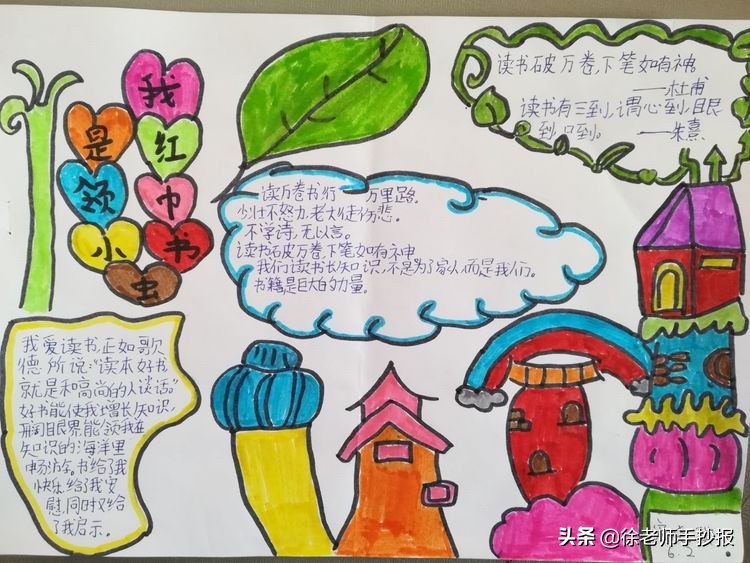 我
是 红
领 巾
小 书
虫
读书破万卷,下笔如有神。
——杜甫
读书有三到,谓心到,眼
到,口到。 ——朱熹
读万卷书行 万里路.
少壮不努力,老大徒伤悲。
不学诗,无以言。
读书破万卷,下笔如有神
我们读书长知识,不是为了家人而是我们。
书籍是巨大的力量。
我爱读书,正如歌
德所说:“读本好书
就是和高尚的人谈话。”
好书能使我增长知识,
开阔眼界,能领我在
知识的海洋里
畅游。书给了我
快乐,给了我安
慰,同时又给
了我启示。
6.2
头条 @徐老师手抄报